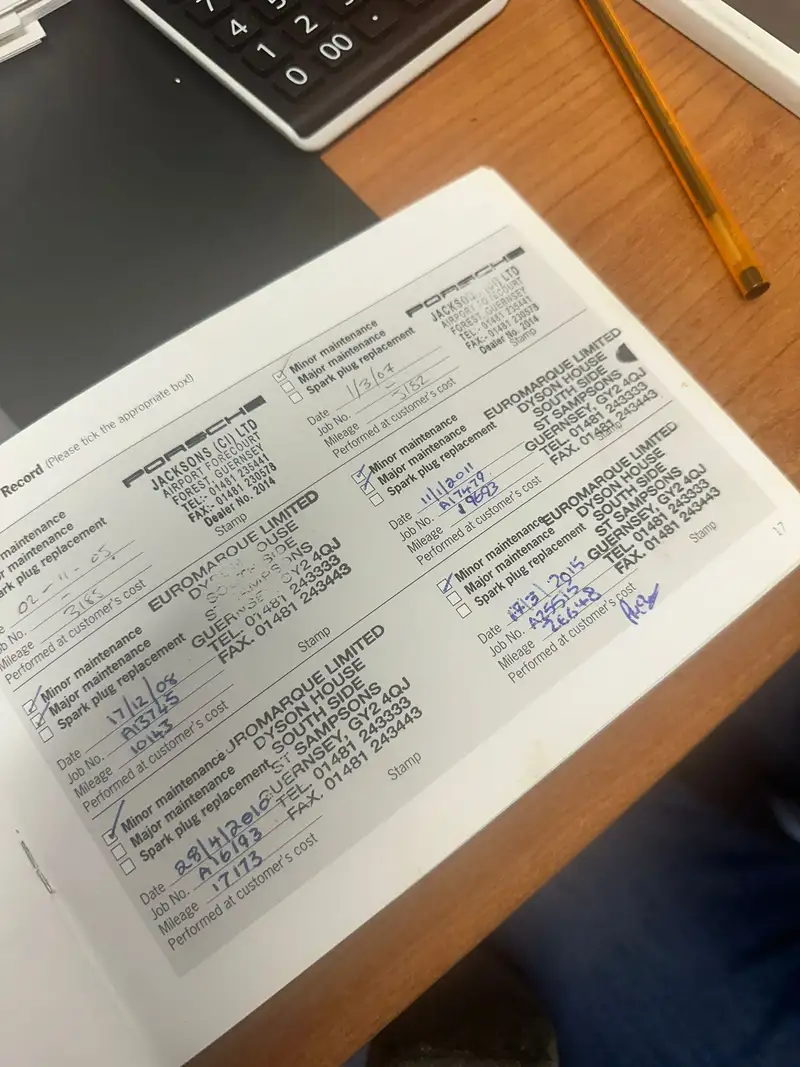 4
1
2
0
00
.
Record (Please tick the appropriate box!)
maintenance
maintenance
spark plug replacement
02-11-05
Job No.
3185
Mileage
Performed at customer's cost
PORSCHE
JACKSONS (CI) LTD
AIRPORT FORECOURT
FOREST, GUERNSEY
TEL:- 01481 235441
FAX:- 01481 230578
Dealer No. 2014
Stamp
Minor maintenance
Major maintenance
Spark plug replacement
Date 17/12/08
Job No. A13745
Mileage 10143
Performed at customer's cost
EUROMARQUE LIMITED
DYSON HOUSE
SOUTH SIDE
ST SAMPSONS
GUERNSEY, GY2 4QJ
TEL. 01481 243333
FAX. 01481 243443
Stamp
Minor maintenance
Major maintenance
Spark plug replacement
Date 28/4/2010
Job No. A16193
Mileage 17173
Performed at customer's cost
UROMARQUE LIMITED
DYSON HOUSE
SOUTH SIDE
ST SAMPSONS
GUERNSEY, GY2 4QJ
TEL. 01481 243333
FAX. 01481 243443
Stamp
Minor maintenance
Major maintenance
Spark plug replacement
Date 1/3/07
Job No.
Mileage 5182
Performed at customer's cost
PORSCHE
JACKSONS (CI) LTD
AIRPORT FORECOURT
FOREST, GUERNSEY
TEL:- 01481 235441
FAX:- 01481 230578
Dealer No. 2014
Stamp
Minor maintenance
Major maintenance
Spark plug replacement
Date 11/1/2011
Job No. A17479
Mileage 19693
Performed at customer's cost
EUROMARQUE LIMITED
DYSON HOUSE
SOUTH SIDE
ST SAMPSONS
GUERNSEY, GY2 4QJ
TEL. 01481 243333
FAX. 01481 243443
Stamp
Minor maintenance
Major maintenance
Spark plug replacement
Date 17/3/2015
Job No. A25515
Mileage 26648
Performed at customer's cost
EUROMARQUE LIMITED
DYSON HOUSE
SOUTH SIDE
ST SAMPSONS
GUERNSEY, GY2 4QJ
TEL. 01481 243333
FAX. 01481 243443
Stamp
17